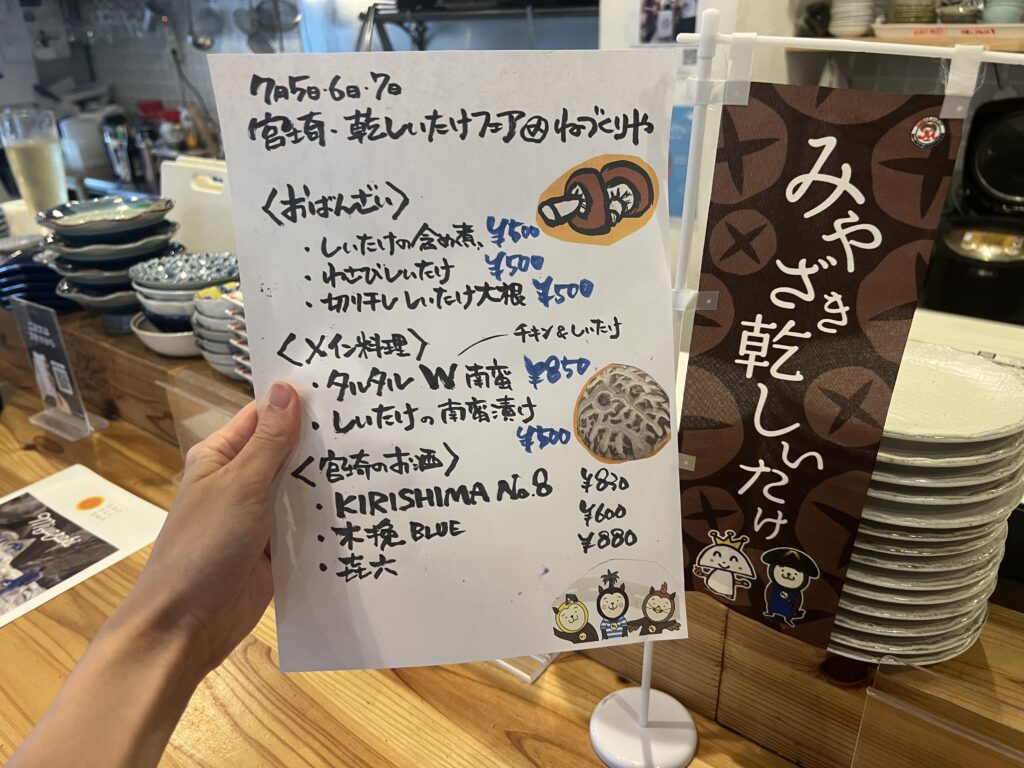 7月5日・6日・7日
宮崎・乾しいたけフェア@ねづくりや
〈おばんざい〉
・しいたけの含め煮 ¥500
・わさびしいたけ ¥500
・切り干ししいたけ大根 ¥500
〈メイン料理〉
チキン&しいたけ
・タルタルW南蛮 ¥850
・しいたけの南蛮漬け
¥500
〈宮崎のお酒〉
・KIRISHIMA No.8 ¥830
・木挽BLUE ¥600
・㐂六 ¥880
みやざき乾しいたけ
Miyazaki